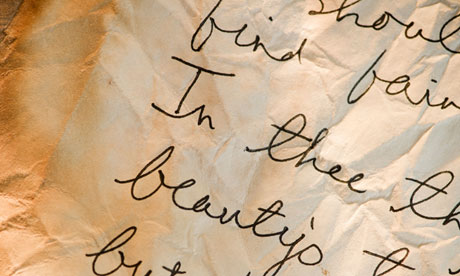 shoul
find fair
In thee th
beautys t
but